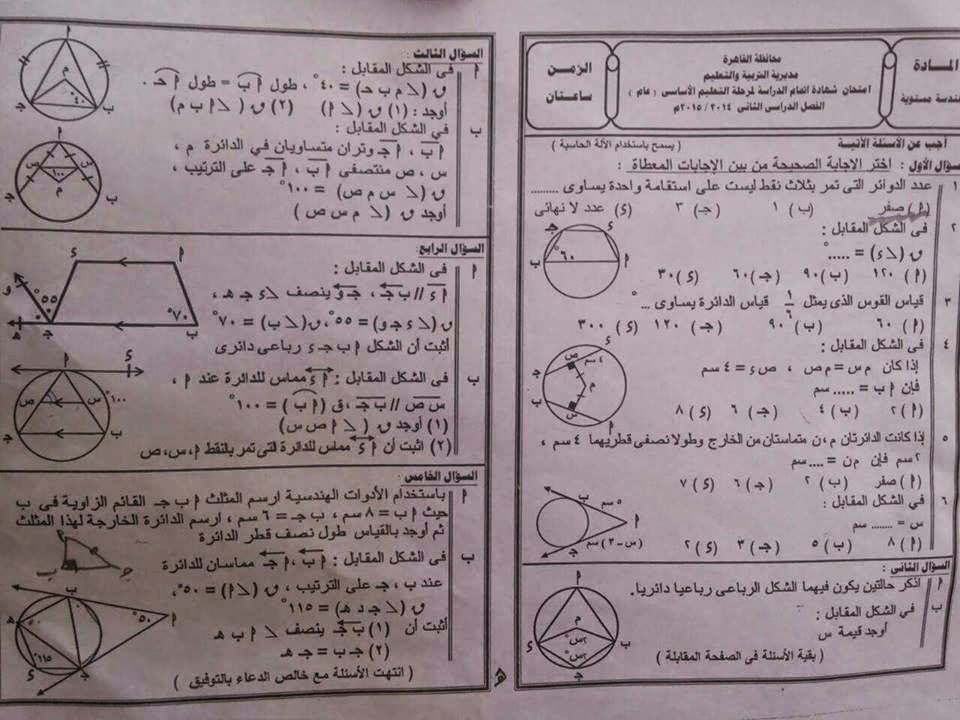 المادة
هندسة مستوية
محافظة القاهرة
مديرية التربية والتعليم
امتحان شهادة اتمام الدراسة لمرحلة التعليم الأساسى ( عام )
الفصل الدراسى الثانى ٢٠١٤ / ٢٠١٥م
الزمن
ساعتان
أجب عن الأسئلة الآتية : ( يسمح باستخدام الآلة الحاسبة )
السؤال الأول : اختر الاجابة الصحيحة من بين الإجابات المعطاة :
١ عدد الدوائر التى تمر بثلاث نقط ليست على استقامة واحدة يساوى ........
(أ) صفر (ب) ١ (جـ) ٣ (د) عدد لا نهائى
٢ فى الشكل المقابل :
ق (∠ء) = .....°
(أ) ١٢٠ (ب) ٩٠ (جـ) ٦٠ (ء) ٣٠
ء جـ ب أ ٦٠°
٣ قياس القوس الذى يمثل ١/٦ قياس الدائرة يساوى ...°
(أ) ٦٠ (ب) ٩٠ (جـ) ١٢٠ (ء) ٣٠٠
٤ فى الشكل المقابل :
إذا كان م س = م ص ، ص ء = ٤ سم
فإن أ ب = ..... سم
(أ) ٢ (ب) ٤ (جـ) ٦ (ء) ٨
ء ص ٤ سم جـ م س
٥ إذا كانت الدائرتان م ، ن متماستان من الخارج وطولا نصفى قطريهما ٤ سم ،
٢ سم فإن م ن = .... سم
(أ) صفر (ب) ٢ (جـ) ٦ (ء) ٧
٦ في الشكل المقابل :
س = ........ سم
(أ) ٨ (ب) ٥ (جـ) ٣ (ء) ٢
ب ٥ سم أ (س - ٣) سم جـ
السؤال الثانى :
أ اذكر حالتين يكون فيهما الشكل الرباعى رباعيا دائريا.
ب في الشكل المقابل :
أوجد قيمة س
أ م ب جـ
( بقية الأسئلة فى الصفحة المقابلة )
السؤال الثالث :
أ فى الشكل المقابل :
ق (∠ م ب جـ) = ٤٠° ، طول أب = طول أجـ .
أوجد : (١) ق (∠ أ) (٢) ق (∠ أ ب م)
أ م ٤٠° ب جـ
ب في الشكل المقابل :
أب ، أجـ وتران متساويان في الدائرة م ،
س ، ص منتصفى أب ، أجـ على الترتيب ،
ق (∠ س م ص) = ١٠٠°
أوجد ق (∠ م س ص )
أ س ص ١٠٠ م ب جـ
السؤال الرابع :
أ فى الشكل المقابل :
أء // ب جـ ، جـ و ينصف ∠ ء جـ هـ ،
ق (∠ ء جـ و) = ٥٥° ، ق (∠ب) = ٧٠°
أثبت أن الشكل أ ب جـ ء رباعى دائرى
أ ء و ٥٥° ٧٠° ب جـ هـ
ب فى الشكل المقابل : أء مماس للدائرة عند أ ،
س ص // ب جـ ، ق (أ ب) = ١٠٠°
(١) أوجد ق (∠ أ ص س)
(٢) اثبت أن أء مماس للدائرة التى تمر بالنقط أ ، س ، ص
أ ء س ص ١٠٠° ب جـ
السؤال الخامس :
أ باستخدام الأدوات الهندسية ارسم المثلث أ ب جـ القائم الزاوية فى ب
حيث أ ب = ٨ سم ، ب جـ = ٦ سم ، ارسم الدائرة الخارجة لهذا المثلث
ثم أوجد بالقياس طول نصف قطر الدائرة
ب فى الشكل المقابل : أب ، أجـ مماسان للدائرة
عند ب ، جـ على الترتيب ، ق (∠ أ) = ٥٠° ،
ق (∠ جـ ء هـ) = ١١٥°
أثبت أن (١) ب جـ ينصف ∠ أ ب هـ
(٢) جـ ب = جـ هـ
أ ٥٠° ب هـ ١١٥° ء جـ
( انتهت الأسئلة مع خالص الدعاء بالتوفيق )